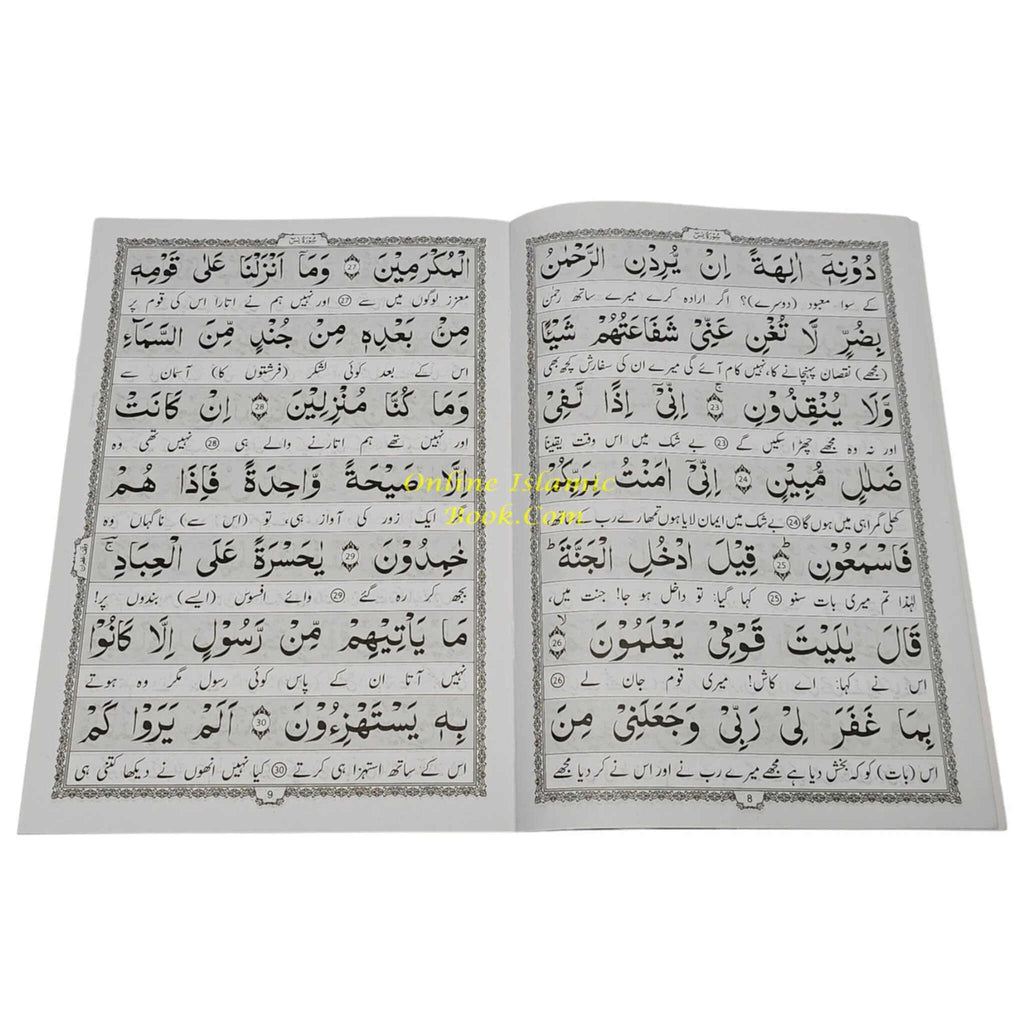 سُوْرَةُ يٰسٓ
دُوْنِهٖۤ اٰلِهَةً اِنْ يُّرِدْنِ الرَّحْمٰنُ
کے سوا معبود (دوسرے)؟ اگر ارادہ کرے میرے ساتھ رحمٰن
بِضُرٍّ لَّا تُغْنِ عَنِّيْ شَفَاعَتُهُمْ شَيْـًٔا
(مجھے) نقصان پہنچانے کا، نہیں کام آئے گی میرے ان کی سفارش کچھ بھی
وَّلَا يُنْقِذُوْنِ ۚ 23 اِنِّيْۤ اِذًا لَّفِيْ
اور نہ وہ مجھے چھڑا سکیں گے 23 بے شک میں اس وقت یقیناً
ضَلٰلٍ مُّبِيْنٍ 24 اِنِّيْۤ اٰمَنْتُ بِرَبِّكُمْ
کھلی گمراہی میں ہوں گا 24 بے شک میں ایمان لایا ہوں تمھارے رب کے
فَاسْمَعُوْنِ ؕ 25 قِيْلَ ادْخُلِ الْجَنَّةَ ؕ
لہٰذا تم میری بات سنو 25 کہا گیا: تو داخل ہو جا! جنت میں،
قَالَ يٰلَيْتَ قَوْمِيْ يَعْلَمُوْنَ ۙ 26
اس نے کہا: اے کاش! میری قوم جان لے 26
بِمَا غَفَرَ لِيْ رَبِّيْ وَجَعَلَنِيْ مِنَ
اس (بات) کو کہ بخش دیا ہے مجھے میرے رب نے اور اس نے کر دیا مجھے
8
سُوْرَةُ يٰسٓ
الْمُكْرَمِيْنَ 27 وَمَاۤ اَنْزَلْنَا عَلٰى قَوْمِهٖ
معزز لوگوں میں سے 27 اور نہیں ہم نے اتارا اس کی قوم پر
مِنْۢ بَعْدِهٖ مِنْ جُنْدٍ مِّنَ السَّمَآءِ
اس کے بعد کوئی لشکر (فرشتوں کا) آسمان سے
وَمَا كُنَّا مُنْزِلِيْنَ 28 اِنْ كَانَتْ
اور نہیں تھے ہم اتارنے والے ہی 28 نہیں تھی وہ
اِلَّا صَيْحَةً وَّاحِدَةً فَاِذَا هُمْ
ایک زور کی آواز ہی، تو (اس سے) ناگہاں وہ
خٰمِدُوْنَ 29 يٰحَسْرَةً عَلَى الْعِبَادِ ۚ
بجھ کر رہ گئے 29 وائے افسوس (ایسے) بندوں پر!
مَا يَاْتِيْهِمْ مِّنْ رَّسُوْلٍ اِلَّا كَانُوْا
نہیں آتا ان کے پاس کوئی رسول مگر وہ ہوتے
بِهٖ يَسْتَهْزِءُوْنَ 30 اَلَمْ يَرَوْا كَمْ
اس کے ساتھ استہزا ہی کرتے 30 کیا نہیں انھوں نے دیکھا کتنی ہی
9
Online Islamic
Book.Com